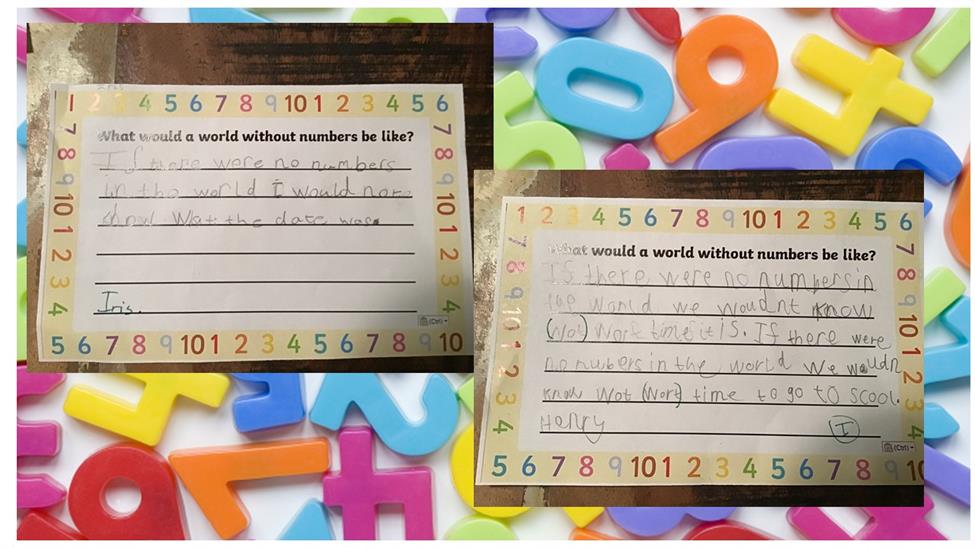 1 2 3 4 5 6 7 8 9 10 1 2 3 4 5 6
7 8 9 10 1 2 3 4
What would a world without numbers be like?
If there were no numbers
in the world I would not
know Wat the date was.
Iris.
(Ctrl)
7 8 9 10 1 2 3 4
5 6 7 8 9 10 1 2 3 4 5 6 7 8 9 10
1 2 3 4 5 6 7 8 9 10 1 2 3 4 5 6
7 8 9 10 1 2 3 4
What would a world without numbers be like?
If there were no numbers in
the world we woudnt know
(wot) time it is. If there were
no numbers in the world we wouldn
know wot time to go to scool.
Henry
I
(Ctrl)
7 8 9 10 1 2 3 4
5 6 7 8 9 10 1 2 3 4 5 6 7 8 9 10